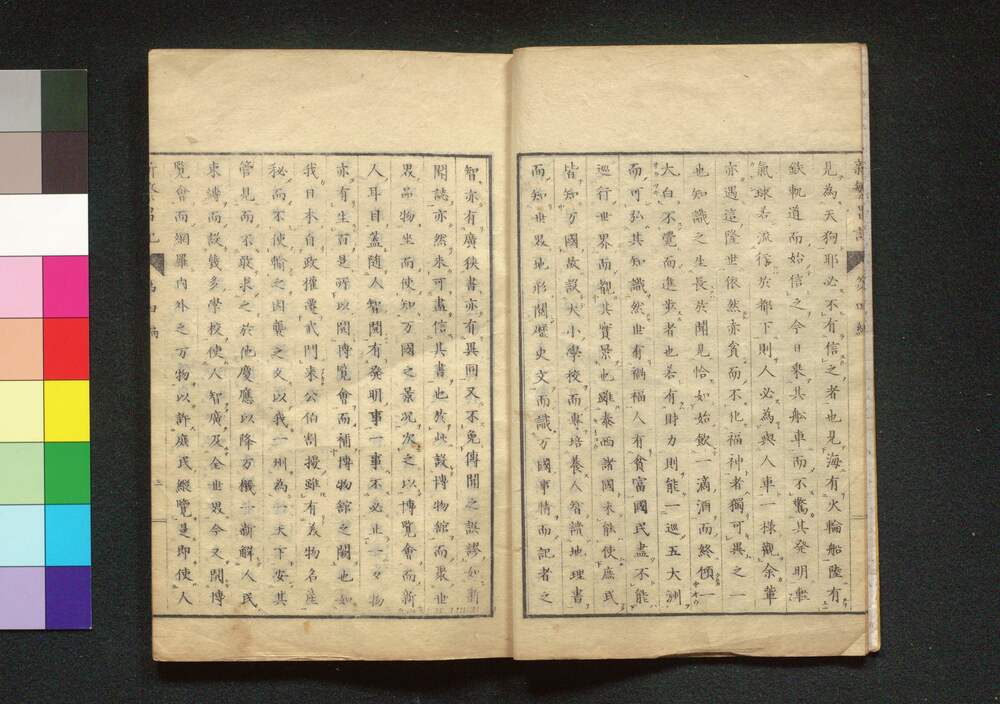 見為天狗耶必不有信之者也見海有火輪船陸有
鉄軌道而始信之今日乗其船車而不驚其発明輕
氣球若流行於都下則人必為與人車一様観余輩
亦遇這隆世依然赤貧而不化福神者獨可異之一
也知識之生長於聞見恰如始飲一滴酒而終傾一
大白不覺而進歩者也若有財力則能一巡五大洲
而可弘其知識然世有禍福人有貧富國民盡不能
巡行世界而観其實景也雖泰西諸國未能使庶民
皆知万國故設大小學校而專培養人智讀地理書
而知世界地形閲歴史文而識万國事情而記者之
智亦有廣狹書亦有異同又不免傳聞之誤謬如新
聞誌亦然未可盡信其書也於此設博物館而聚世
界品物坐而使知万國之景况次之以博覽會而新
人耳目蓋随人智開有発明事一事不必止一々物
亦有生而是所以開博覧會而補博物館之闕也如
我日本自政權遷武門来公伯割據雖有美物名産
秘而不使輸之因襲之久以我一州為一天下安其
管見而不敢求之於他慶應以降方儀一新解人民
束縛而設幾多學校使人智廣及全世界今又開博
覧會而網羅内外之万物以許庶民縦覧是即使人
第四編
二